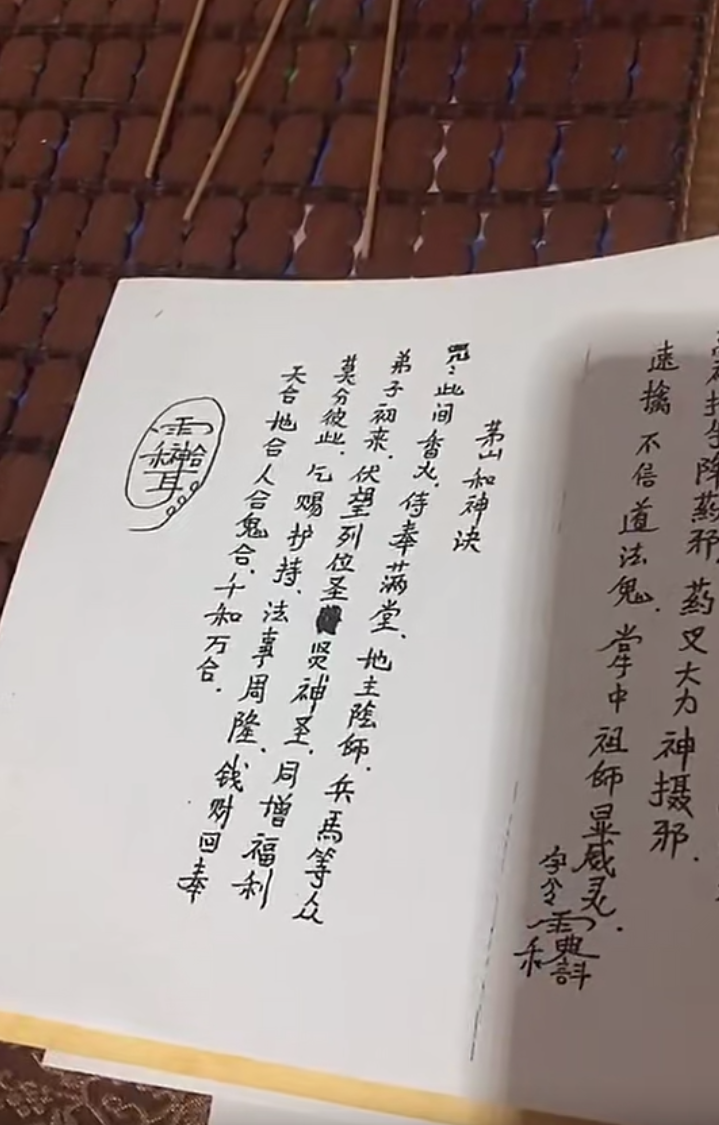 阵药邪.药叉大力神摄邪.
速擒不信道法鬼.掌中祖師显威灵.
茅山和神诀
咒:此间香火、侍奉满堂、地主陰师.兵馬等众
弟子初来、伏望列位圣贤神圣、同增福利
莫分彼此、乞赐护持、法事周隆、钱财回奉
天合地合人合鬼合、千和万合.